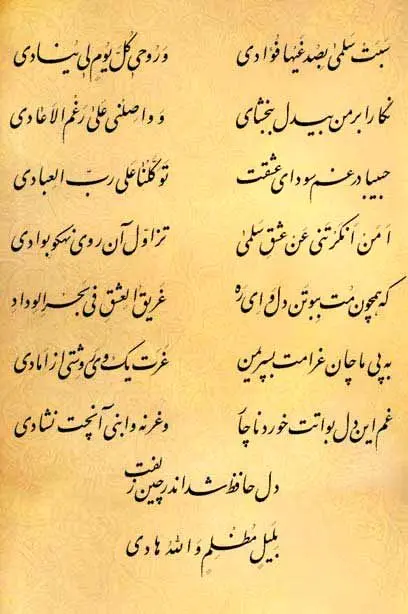 سَبَتْ سَلْمیٰ بِصُدغَیْها فُؤادی وَ رُوحی کُلَّ یَوْمٍ لی یُنادی
نگارا بر من بیدل ببخشای وَ واصِلْنی عَلیٰ رَغْمِ الاَعادی
حبیبا در غم سودای عشقت تَوَکَّلْنا عَلیٰ رَبِّ العِبادی
اَمَنْ اَنْکَرْتَنی عَنْ عِشْقِ سَلْمیٰ تزاوّل آن روی نهکو بوادی
که همچون مُت ببوتن دل و ای ره غَریقُ العِشْقِ فی بَحْرِ الوِدادِ
به پی ماچان غرامت بسپریمن غَرَت یک وی روشتی از اَمادی
غم این دل بواتت خورد ناچار وغر نه وابنی آنچت نشادی
دل حافظ شد اندر چین زلفت
بِلَیْلٍ مُظْلِمٍ وَ اللهُ هادی